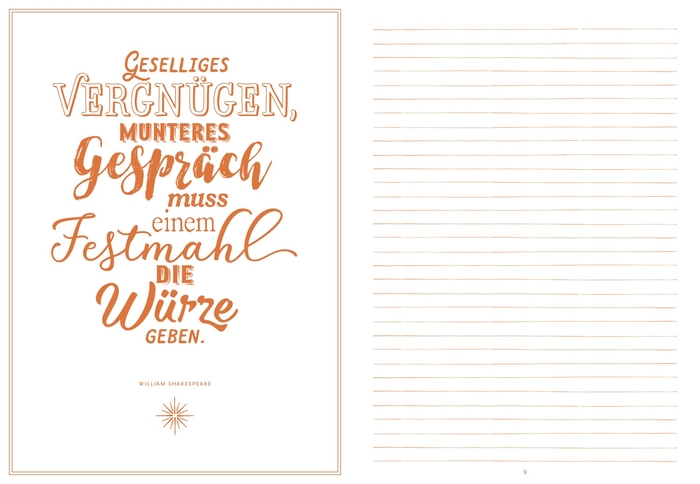 GESELLIGES
VERGNÜGEN,
MUNTERES
Gespräch
muss
einem
Festmahl
DIE
Würze
GEBEN.
WILLIAM SHAKESPEARE
9